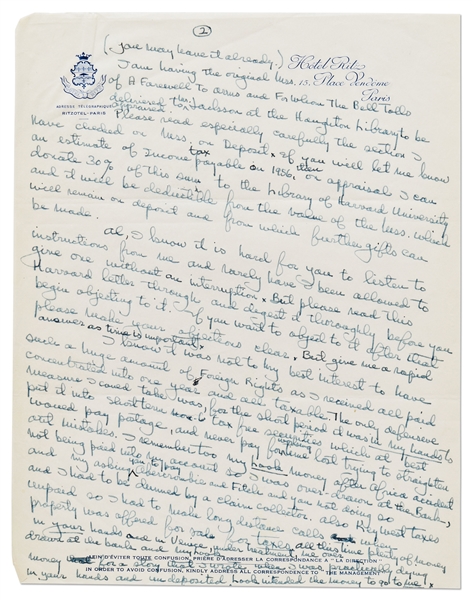 ②
(you may have it already.)
Hotel Ritz
15, Place Vendôme
Paris
ADRESSE TÉLÉGRAPHIQUE
RITZOTEL-PARIS
I am having the original Mss.
of A Farewell To Arms and For Whom The Bell Tolls
delivered to Jackson at the Houghton Library to be
appraised.
Please read especially carefully the section I
have checked on Mss. on Deposit. If you will let me know
an estimate of Income tax payable on 1956, then on appraisal I can
donate 30% of this sum to the Library of Harvard University
and it will be deductible from the value of the Mss. which
will remain on deposit and from which further gifts can
be made.
Al, I know it is hard for you to listen to
instructions from me and rarely have I been allowed to
give one without an interruption. But please read this
Harvard letter through and digest it thoroughly before you
begin objecting to it. If you want to object to it after that
please make your objections clear. But give me a rapid
answer as time is important.
I know it was not to my best interest to have
such a huge amount of Foreign Rights as I received all paid
concentrated into one year and all taxable. The only defensive
measure I could take was, for the short period it was in my hands to
put it into short term tax free securities which at best
would pay postage, and never pay for time lost trying to straighten
out mistakes. I remember too my book money after Africa accident
not being paid into my account so I was over-drawn at the Bank,
and my asking you to pay Abercrombie and Fitch and you not doing so
and I had to be dunned by a claim collector. Also Key West taxes
unpaid so I had to make long distance calls
property was offered for sale for taxes all this time plenty of money
in your hands and in Venice, under treatment, me over
drawn at the bank and my
AFIN D'ÉVITER TOUTE CONFUSION, PRIÈRE D'ADRESSER LA CORRESPONDANCE A "LA DIRECTION"
IN ORDER TO AVOID CONFUSION, KINDLY ADDRESS ALL CORRESPONDENCE TO THE MANAGEMENT
money for a story that I wrote when I was practically dying
in your hands and un-deposited